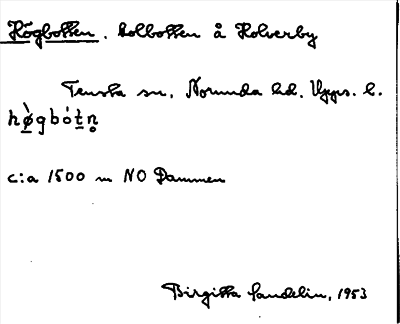 Högbotten. kolbotten å Holverby
Tensta sn. Norunda hd. Upps. l.
hø̀gbót̠n̥
c:a 1500 m NO Dammen
Birgitta Sandelin, 1953